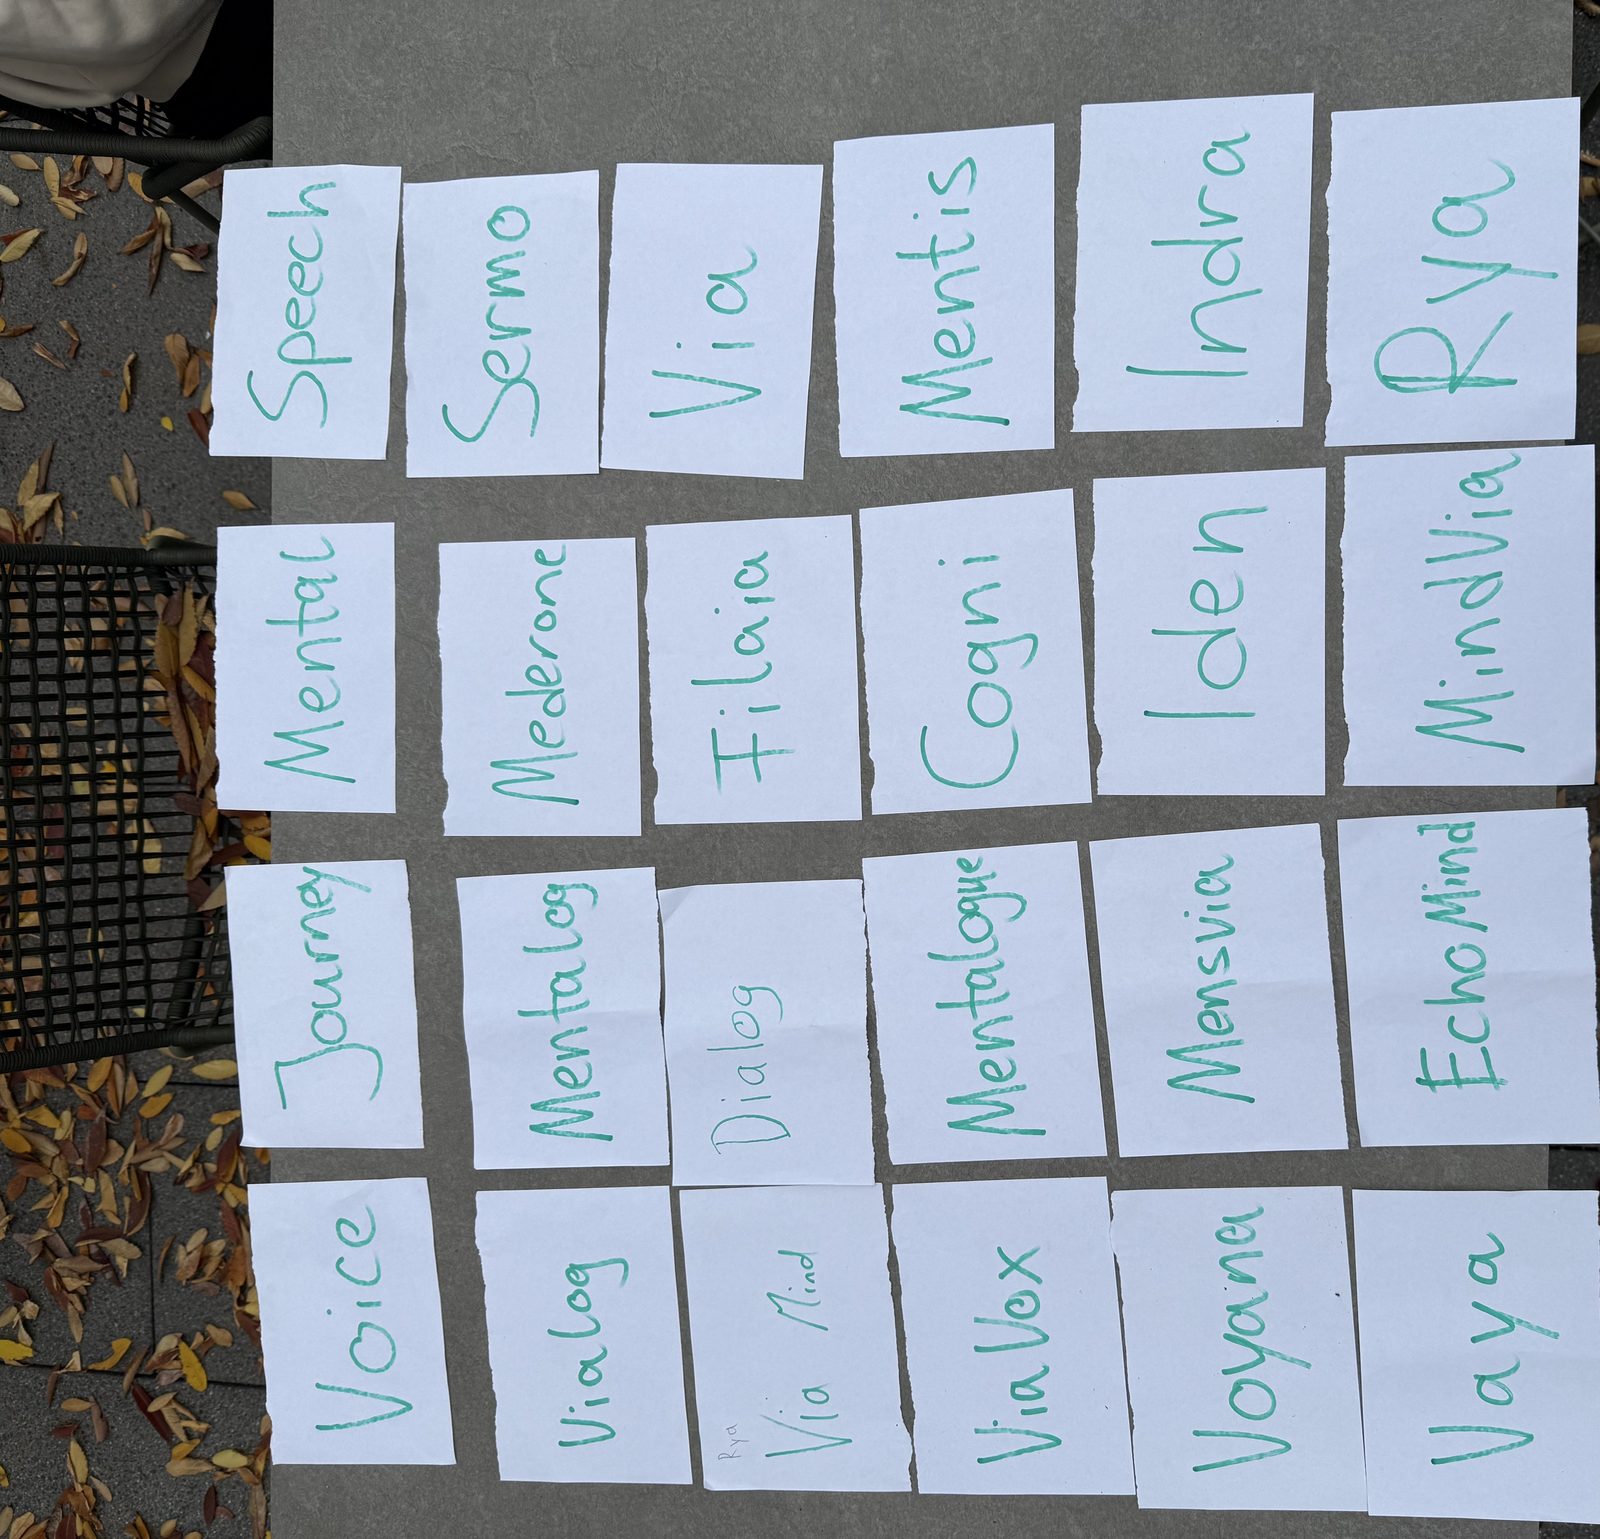 Voice
Journey
Mental
Speech
Vialog
Mentalog
Mederone
Sermo
Rya
Via Mind
Dialog
Filaia
Via
ViaVox
Mentalogue
Cogni
Mentis
Voyana
Mensvia
Iden
Indra
Vaya
EchoMind
MindVia
Rya